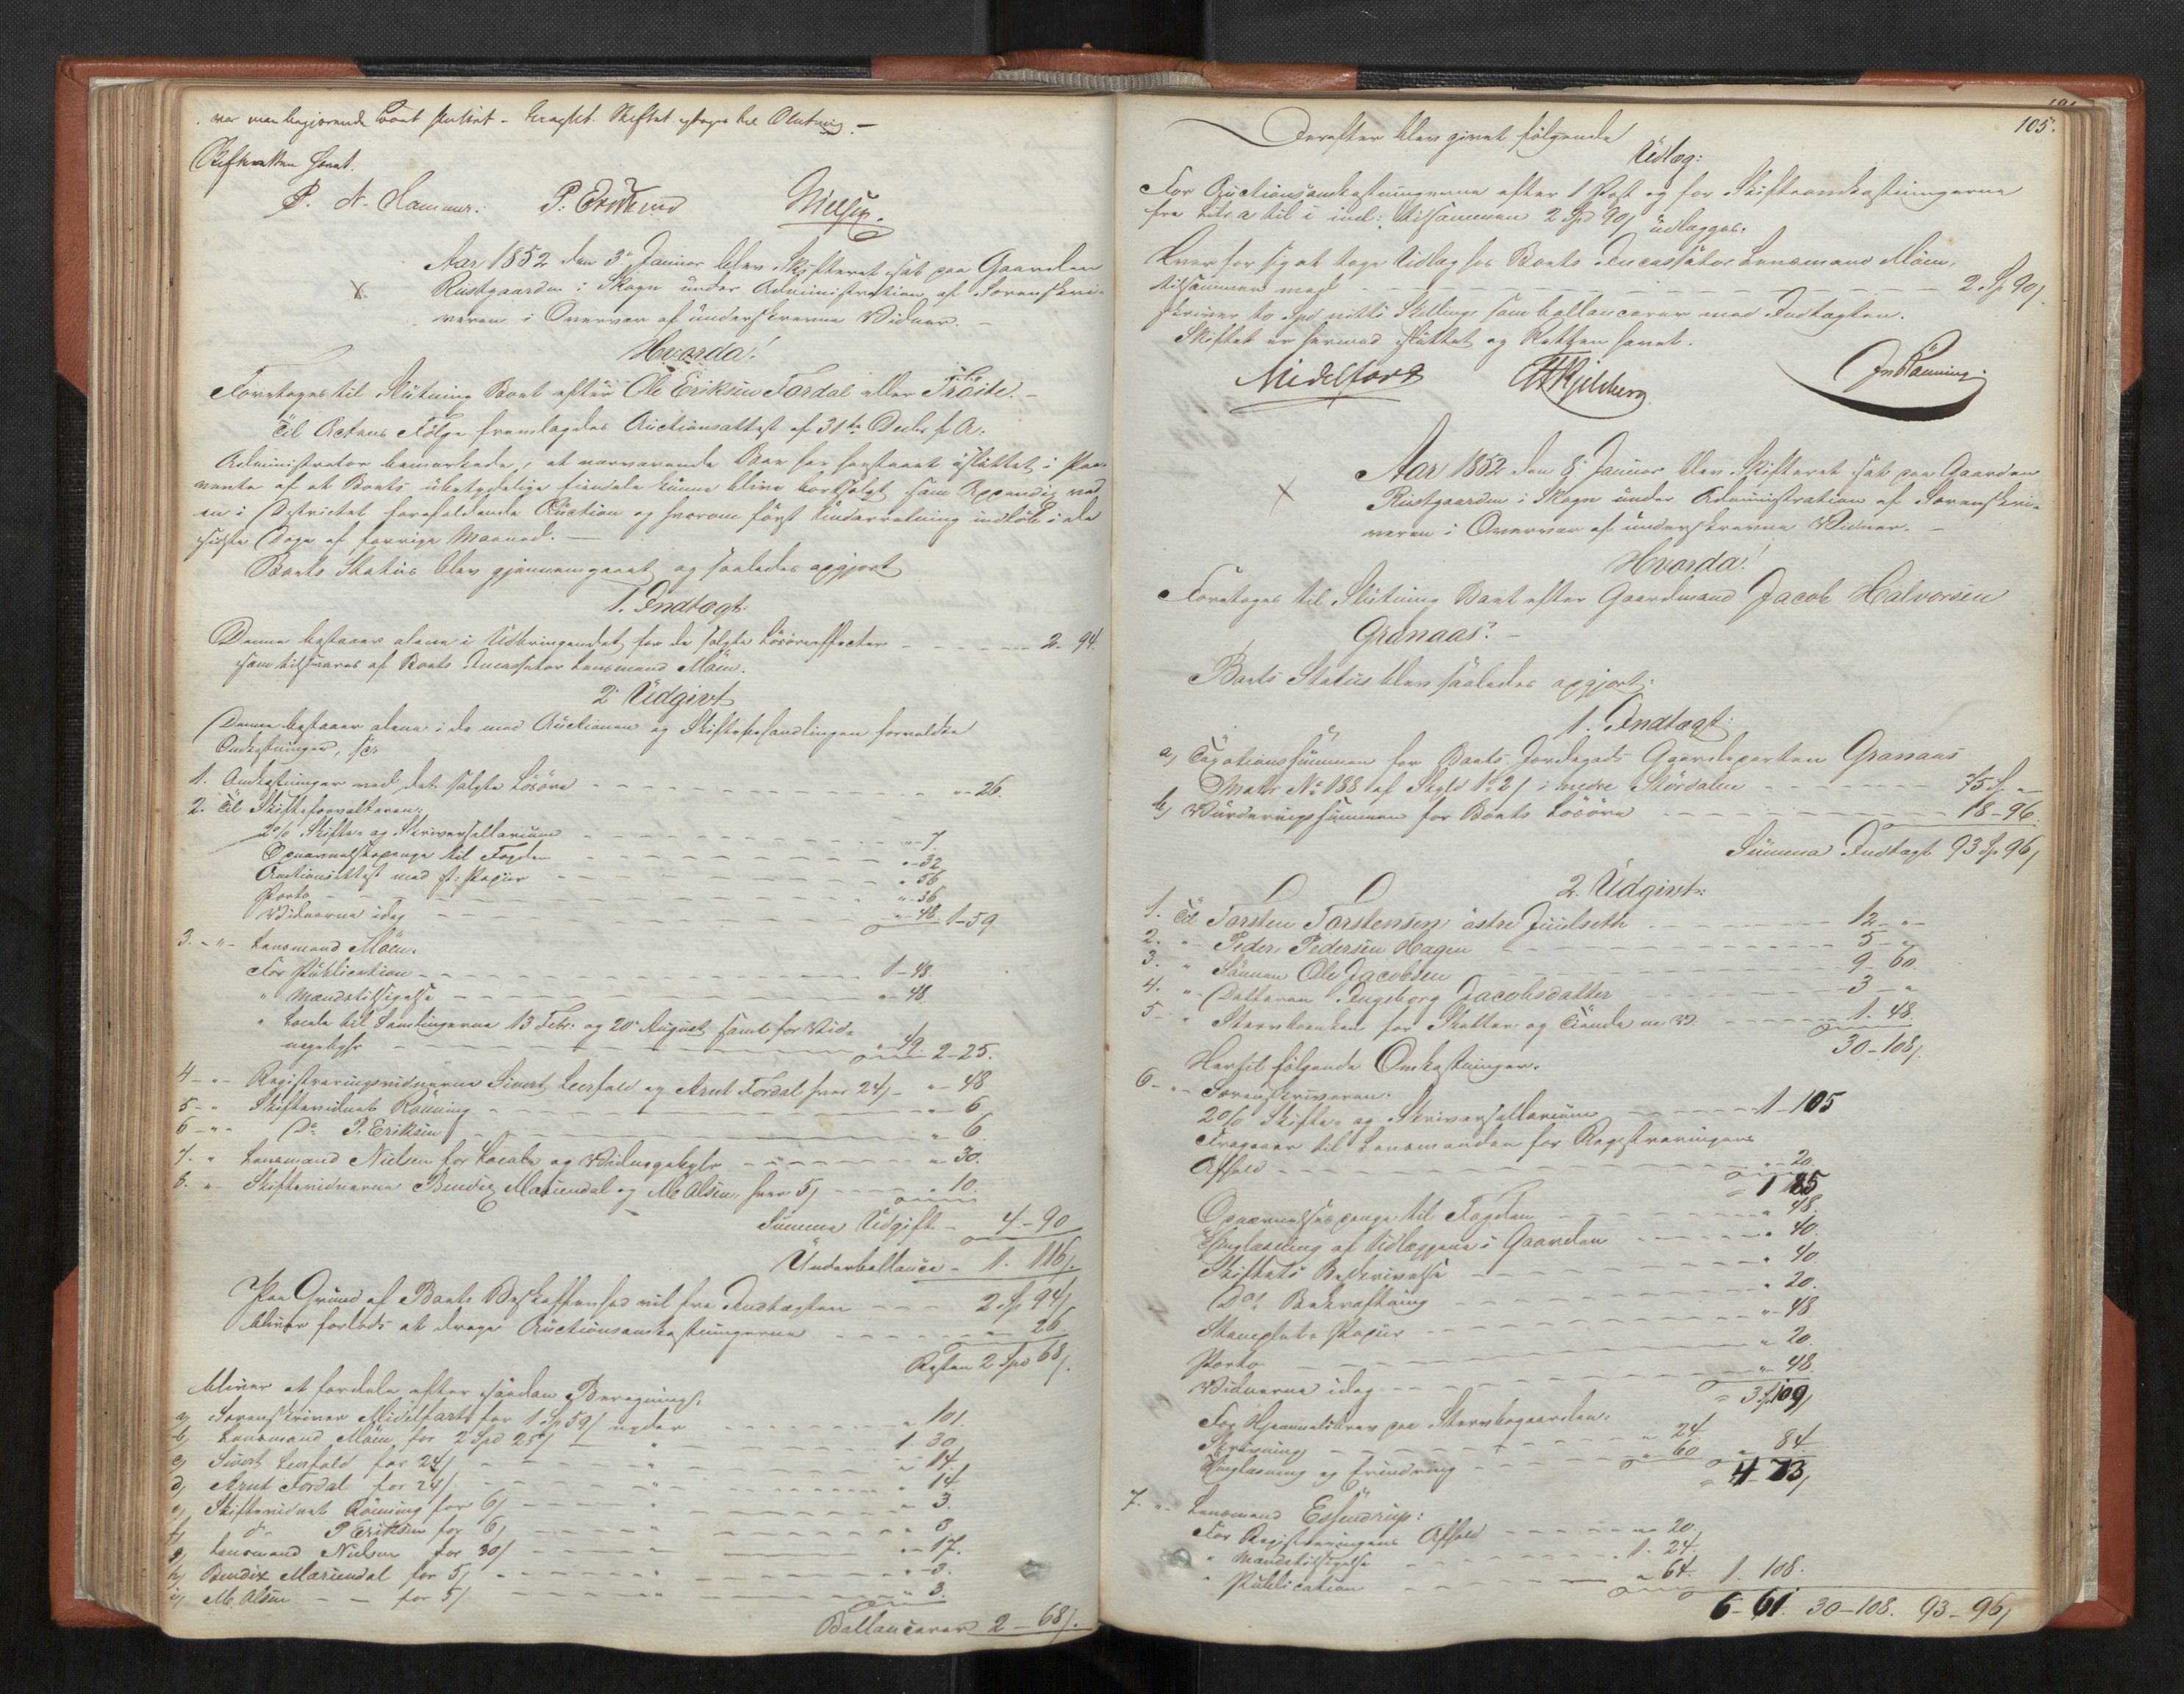 var man begjærende Boet sluttet.
Skifteretten hævet.
P. N. Hammer. P. Nielsen.
Aar 1852 den 3. Januar blev Skifteret sat paa Gaarden
Rustgaarden i Skogn under Administration af Sorenskri-
veren i Overvær af underskrevne Vidner. –
Hvorda!
Foretoges til Slutning Boet efter Ole Eriksen Fordal eller Troite. –
Til Actens Følge fremlagdes Auctionsattest af 31te Decbr f. A.
Administrator bemærkede, at nærværende Boe har henstaaet usluttet i Paa-
vente af at Boets ubetydelige Eiendele kunne blive bortsolgt som Appendix ved
en i Districtet forefaldende Auction og hvorom først Underretning indløb i de
sidste Dage af forrige Maaned. –
Boets Status blev gjennemgaaet og saaledes opgjort
1. Indtægt.
Denne bestaaer alene i Udbringendet for de solgte Løsøreeffecter – – – 2 – 94.
som tilsvares af Boets Incassator Lensmand Møen.
2 Udgivt
Denne bestaaer alene i de med Auctionen og Skiftebehandlingen forvoldte
Omkostninger, sc:
1. Omkostninger ved det solgte Løsøre – – – " – 26.
2. Til Skifteforvalteren:
2% Skifte- og Skriversallarium – – – " – 7.
Opnævnelsespenge til Fogden – – – " – 32
Auctionsattest med st: Papiir – – – " 56
Porto – – – " – 36
Vidnerne idag – – – " – 48. 1 – 59
3. – " – Lensmand Møen.
For Publication – – – 1 – 48.
" Mandstilsigelse – – – " – 48.
" Locale til Samlingerne 13 Febr. og 20 August samt for Vid-
negebyhr – – – " – 49. 2 – 25.
4 – " – Registreringsvidnerne Sivert Leerfald og Arnt Fordal hver 24/ – " – 48
5 – " Skiftevidnet Rønning – – – " – 6
6 – " – Do P. Eriksen – – – " – 6.
7. " Lensmand Nielsen for Locale og Vidnegebyhr – – – " – 30.
8. " – Skiftevidnerne Bendix Mariendal og M. Olsen, hver 5/ – – – " 10.
Summa Udgift – 4. – 90
Underballance – 1. 116/.
Paa Grund af Boets Beskaffenhed vil fra Indtægten – – – 2 Sp 94/
bliver forlods at drage Auctionsomkostningerne – – – " – 26.
Resten 2 Spd 68/.
bliver at fordele efter saadan Beregning:
a) Sorenskriver Midelfart for 1 Sp 59/ nyder – – – " 101.
b) Lensmand Møen for 2 Spd 25/ – " – – – 1. 30
c) Sivert Leerfald for 24/ – – – " 14.
d) Arnt Fordal for 24/ – – – " 14
e) Skiftevidnet Rønning for 6/ – – – " 3.
f) do P Eriksen for 6/ – – – " 3
g) Lensmand Nielsen for 30/ – – – " – 17.
h) Bendix Mariendal for 5/ – – – " – 3.
i) M. Olsen – – for 5/ – – – " 3.
Ballancerer 2 – 68/.
105.
Derefter blev givet følgende
Udlæg:
For Auctionsomkostningerne efter 1 Post og for Skifteomkostningerne
fra Litr a til i incl: tilsammen 2 Spd 90/ udlægges.
Hver for sig at tage Udlæg hos Boets Incassator Lensmand Møen,
tilsammen med – – – 2 Sp 90/.
skriver to Spd nitti Skilling som ballancerer med Indtægten.
Skiftet er hermed sluttet og Retten hævet.
Midelfart Kjelsberg JnRønning
Aar 1852 den 8 Januar blev Skifteret sat paa Gaarden
Rustgaarden i Skogn under Administration af Sorenskri-
veren i Overvær af underskrevne Vidner. –
Hvorda!
Foretoges til Slutning Boet efter Gaardmand Jacob Halvorsen
Grønaas. –
Boets Status blev saaledes opgjort:
1. Indtægt:
a) Taxationssummen for Boets Jordegods Gaardeparten Granaas
Matr No 188 af Skyld 1 " 2/ i nedre Størdalen – – – 75 Sp "
b) Vurderingssummen for Boets Løsøre – – – 18 – 96.
Summa Indtægt 93 Sp 96/
2. Udgivt:
1. Til Torsten Torstensen østre Juulseth – – – 12 – "
2. " – Peder Pedersen Hagen – – – 5 – "
3. " Sønnen Ole Jacobsen – – – 9 – 60
4. " – Datteren Ingeborg Jacobsdatter – – – 3 – "
5 – " Stervboenken for Skatter og Tiende m. V. – – – 1. 48.
30 – 108/.
Hertil følgende Omkostninger.
6 – " – Sorenskriveren:
2% Skifte- og Skriversallarium – – – 1 – 105
Fragaaer til Lensmanden for Registreringens
Afhold – – – " – 20.
= 1 85
Opnævnelsespenge til Fogden – – – " 48.
Thinglæsning af Udlæggene i Gaarden – – – " 40.
Skiftets Beskrivelse – – – " 40
Dos Bekræftning – – – " 20.
Stemplet Papiir – – – " – 48
Porto – – – " 20.
Vidnerne idag – – – " – 48
= 3 Sp 109/
For Hjemmelsbrev paa Stervbogaarden:
Skrivning – – – " 24.
Thinglæsning og Erindring – – – " 60 " 84
= 4 73/
7. " – Lensmand Essendrup:
For Registreringens Afhold – – – " 20.
" Mandstilsigelse – – – 1. 24.
" Publication – – – " 64. 1. 108.
6 – 61. 30 – 108. 93 – 96/